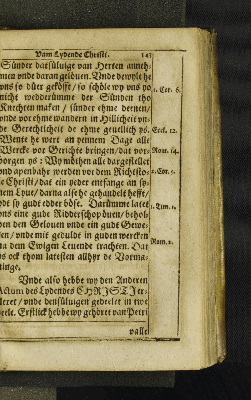 Vam Lydende Christi. 143
Sünder darsülvige van Herten anneh-
men vnde daran gelöuen. Vnde dewyle he
vns so düer gekofft / so schöle wy vns yo
nicht wedderümme der Sünden tho
Knechten maken / sünder ehme deenen /
vnde vor ehme wandern in Hillicheit vn-
de Gerechticheit de ehme geuellich ys.
Wente he wert an yennem Dage alle
Wercke vor Gerichte bringen / dat vor-
borgen ys : Wy möthen alle dargestellet
vnd apenbahr werden vor dem Richtsto-
le Christi / dat ein yeder entfange an sy-
nem Lyue / darna alse he gehandelt hefft /
ydt sy gudt edder böse. Darümme latet
vns eine gude Ridderschop öuen / behol-
den den Gelouen vnde ein gudt Gewe-
ten / vnde mit gedult in guden wercken
na dem Ewigen Leuende trachten. Dat
ys ock thom latesten alhyr de Vorma-
ninge.
Vnde also hebbe wy den Anderen
Actum des Lydendes CHRISTI er-
kleret / vnde densüluigen gedeelet in twe
Deele. Erstlick hebbe wy gehöret van Petri
valle
1. Cor. 6.
Eccl. 12.
Rom. 14.
2. Cor. 5.
1. Tim. 1.
Rom. 2.